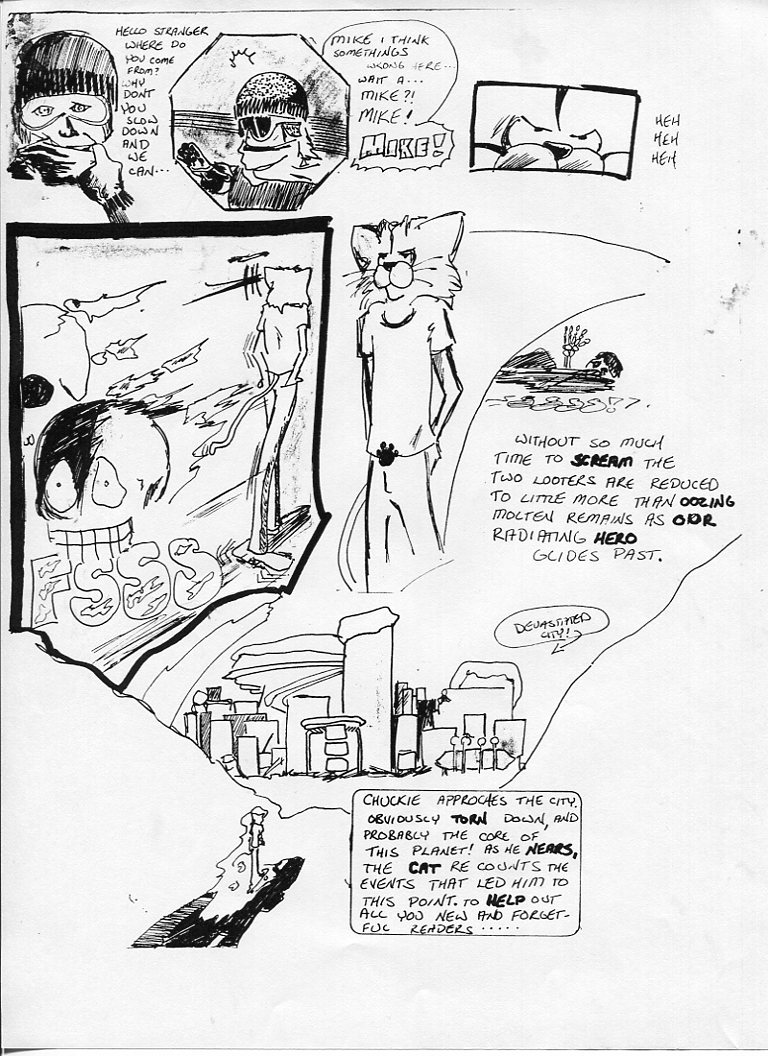 HELLO STRANGER
WHERE DO
YOU COME
FROM?
WHY
DONT
YOU
SLOW
DOWN
AND
WE
CAN...
MIKE I THINK
SOMETHINGS
WRONG HERE...
WAIT A...
MIKE?!
MIKE!
MIKE!
HEH
HEH
HEH
FSSSS
WITHOUT SO MUCH
TIME TO SCREAM THE
TWO LOOTERS ARE REDUCED
TO LITTLE MORE THAN OOZING
MOLTEN REMAINS AS OUR
RADIATING HERO
GLIDES PAST.
DEVASTATED
CITY!
CHUCKIE APPROCHES THE CITY.
OBVIOUSLY TORN DOWN, AND
PROBABLY THE CORE OF
THIS PLANET! AS HE NEARS,
THE CAT RE COUNTS THE
EVENTS THAT LED HIM TO
THIS POINT. TO HELP OUT
ALL YOU NEW AND FORGET-
FUL READERS .....